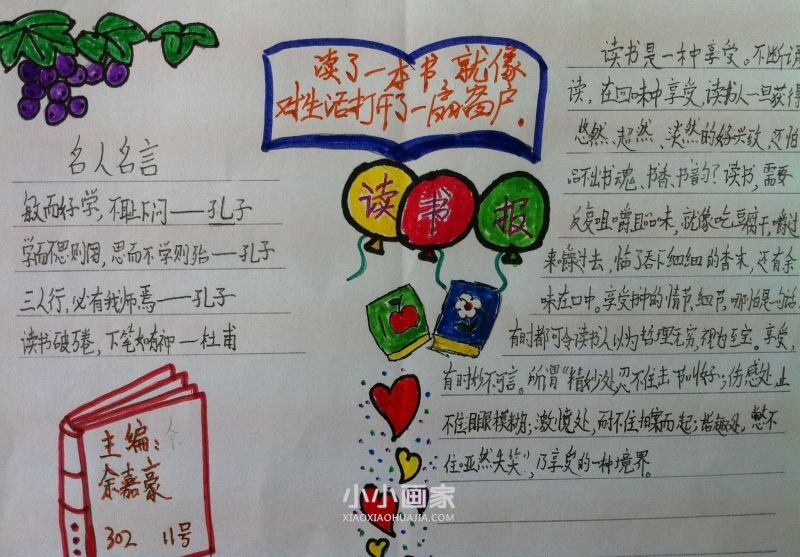 读了一本书，就像
对生活打开了一扇窗户．
名人名言
敏而好学，不耻下问——孔子
学而不思则罔，思而不学则殆——孔子
三人行，必有我师焉——孔子
读书破万卷，下笔如有神—杜甫
读书报
主编：余
余嘉豪
302 11号
读书是一种享受。不断诵
读，在回味中享受，读书人一旦获得
悠然、超然、淡然的好兴致，还怕
品不出书魂、书香、书韵？读书，需要
反复咀嚼且品味，就像吃豆腐干，嚼过
来嚼过去，临了吞下细细的香末，还有余
味在口中。享受书中的情节、细节，哪怕是一句话
有时都可令读书人以为哲理无穷，视为至宝。享受，
有时妙不可言。所谓“精妙处，忍不住击节叫好”；伤感处，止
不住眼眼模糊；激愤处，耐不住拍案而起；谐趣处，憋不
住哑然失笑”，乃享受的一种境界。
小小画家
XIAOXIAOHUAJIA.COM